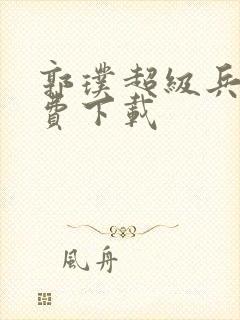 郭璞超級兵
費下載
風舟